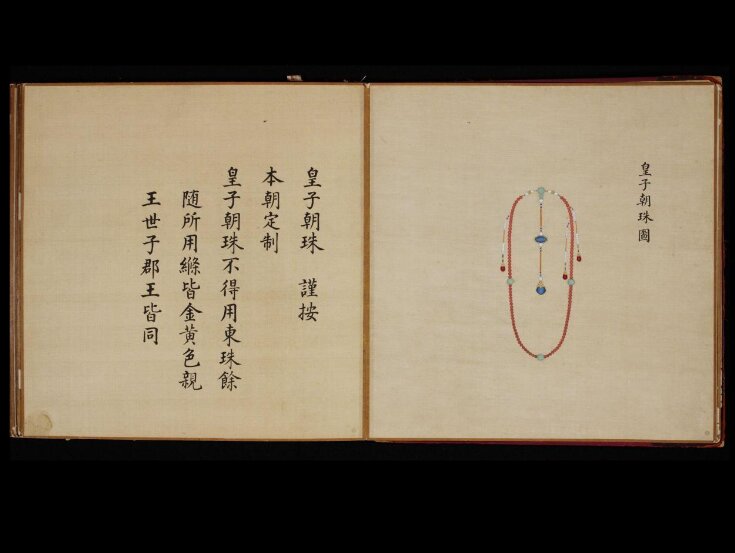 皇子朝珠圖
皇子朝珠　謹按
本朝定制
皇子朝珠不得用東珠餘
隨所用縧皆金黃色親
王世子郡王皆同